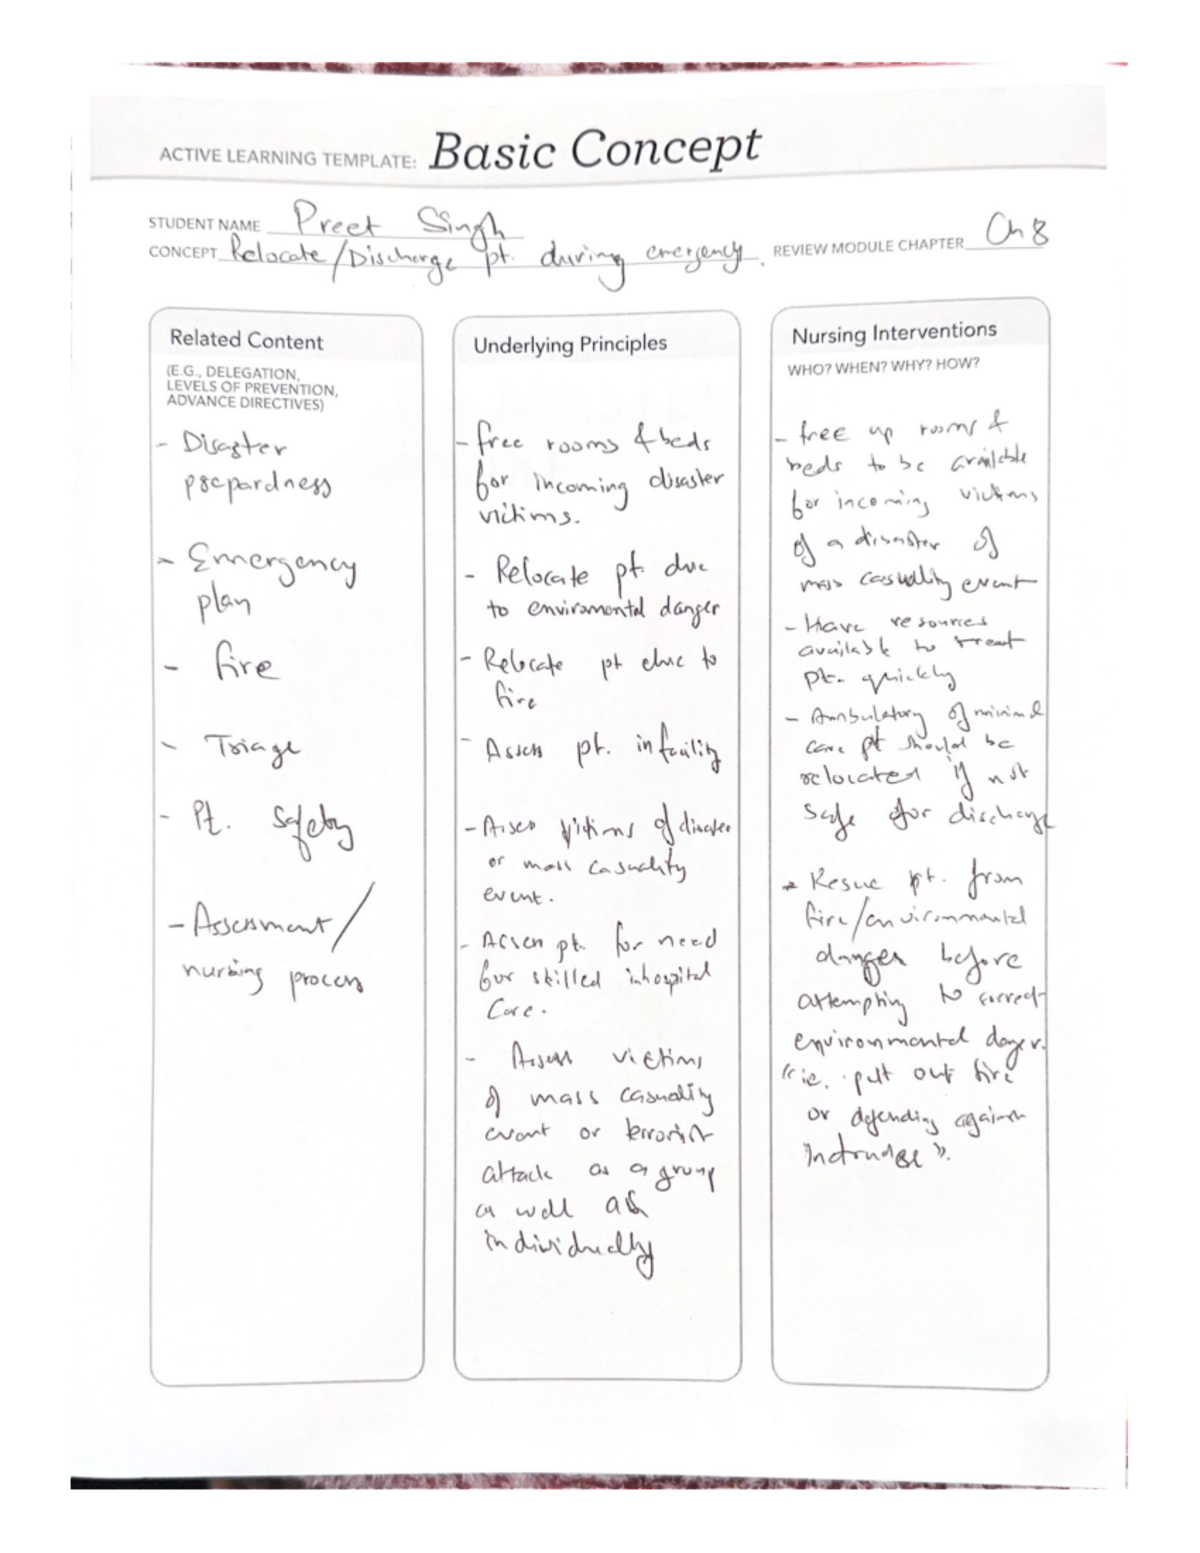 ACTIVE LEARNING TEMPLATE: Basic Concept
STUDENT NAME Preet Singh
CONCEPT Relocate/Discharge pt. during emergency. REVIEW MODULE CHAPTER Ch 8
Related Content
(E.G., DELEGATION,
LEVELS OF PREVENTION,
ADVANCE DIRECTIVES)
- Disaster
prepardness
- Emergency
plan
- fire
- Triage
- Pt. Safety
- Assessment/
nursing process
Underlying Principles
- free rooms & beds
for incoming disaster
victims.
- Relocate pt. due
to enviromental danger
- Relocate pt due to
fire
- Assess pt. in facility
- Assess victims of disaster
or mass casuality
event.
- Assess pt. for need
for skilled inhospital
Care.
- Assess victims
of mass casuality
event or terrorist
attack as a group
as well as
individually
Nursing Interventions
WHO? WHEN? WHY? HOW?
- free up rooms &
beds to be available
for incoming victims
of a disaster of
mass casuality event
- Have resources
available to treat
pt. quickly
- Ambulatory of minimal
care pt should be
relocated if not
safe for discharge
- Resue pt. from
fire/environmental
danger before
attempting to correct
environmental danger.
"ie. putt out fire
or defending against
Intruder".